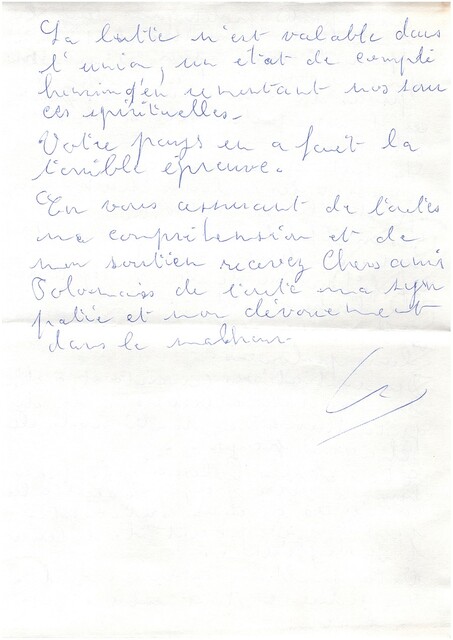 La lutte n'est valable dans
l'union, un état de
en remontant nos sour
ces spirituelles.
Votre pays en a fait la
terrible épreuve.
En vous assurant de toutes
ma compréhension et de
mon soutien recevez Chers amis
Polonais de toute ma sym
patie et mon dévouement
dans le malheur